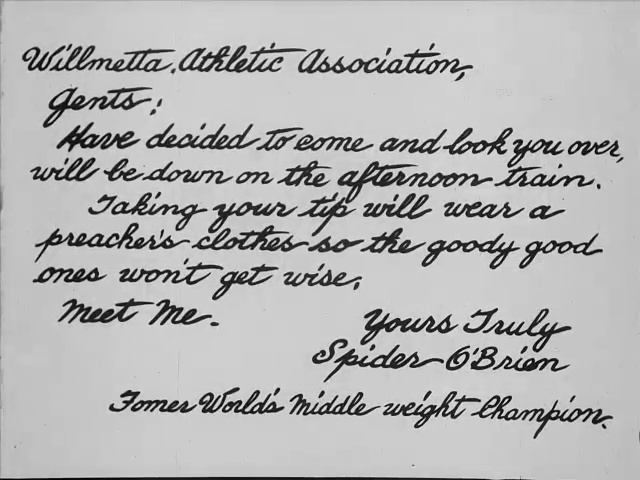 Willmetta Athletic Association,
Gents;
Have decided to come and look you over,
will be down on the afternoon train.
Taking your tip will wear a
preacher's clothes so the goody good
ones won't get wise.
Meet Me.
Yours Truly
Spider O'Brien
Fomer World's Middle weight Champion.